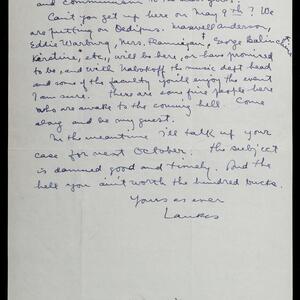 and Communism
Can't you get up here on May 9th? We
are putting on Oedipus. Maxwell Anderson,
Eddie Warburg, Mrs. Flannigan, George Balinchine
Kerstine, etc., will be here, or have promised
to be, and with Nabokoff the music dept head
and some of the faculty you'll enjoy the event
I am sure. There are some fine people here
who are awake to the coming hell. Come
along and be my guest.
In the meantime I'll talk up your
case for next October. The subject
is damned good and timely. And the
hell you ain't worth the hundred bucks.
Yours as ever